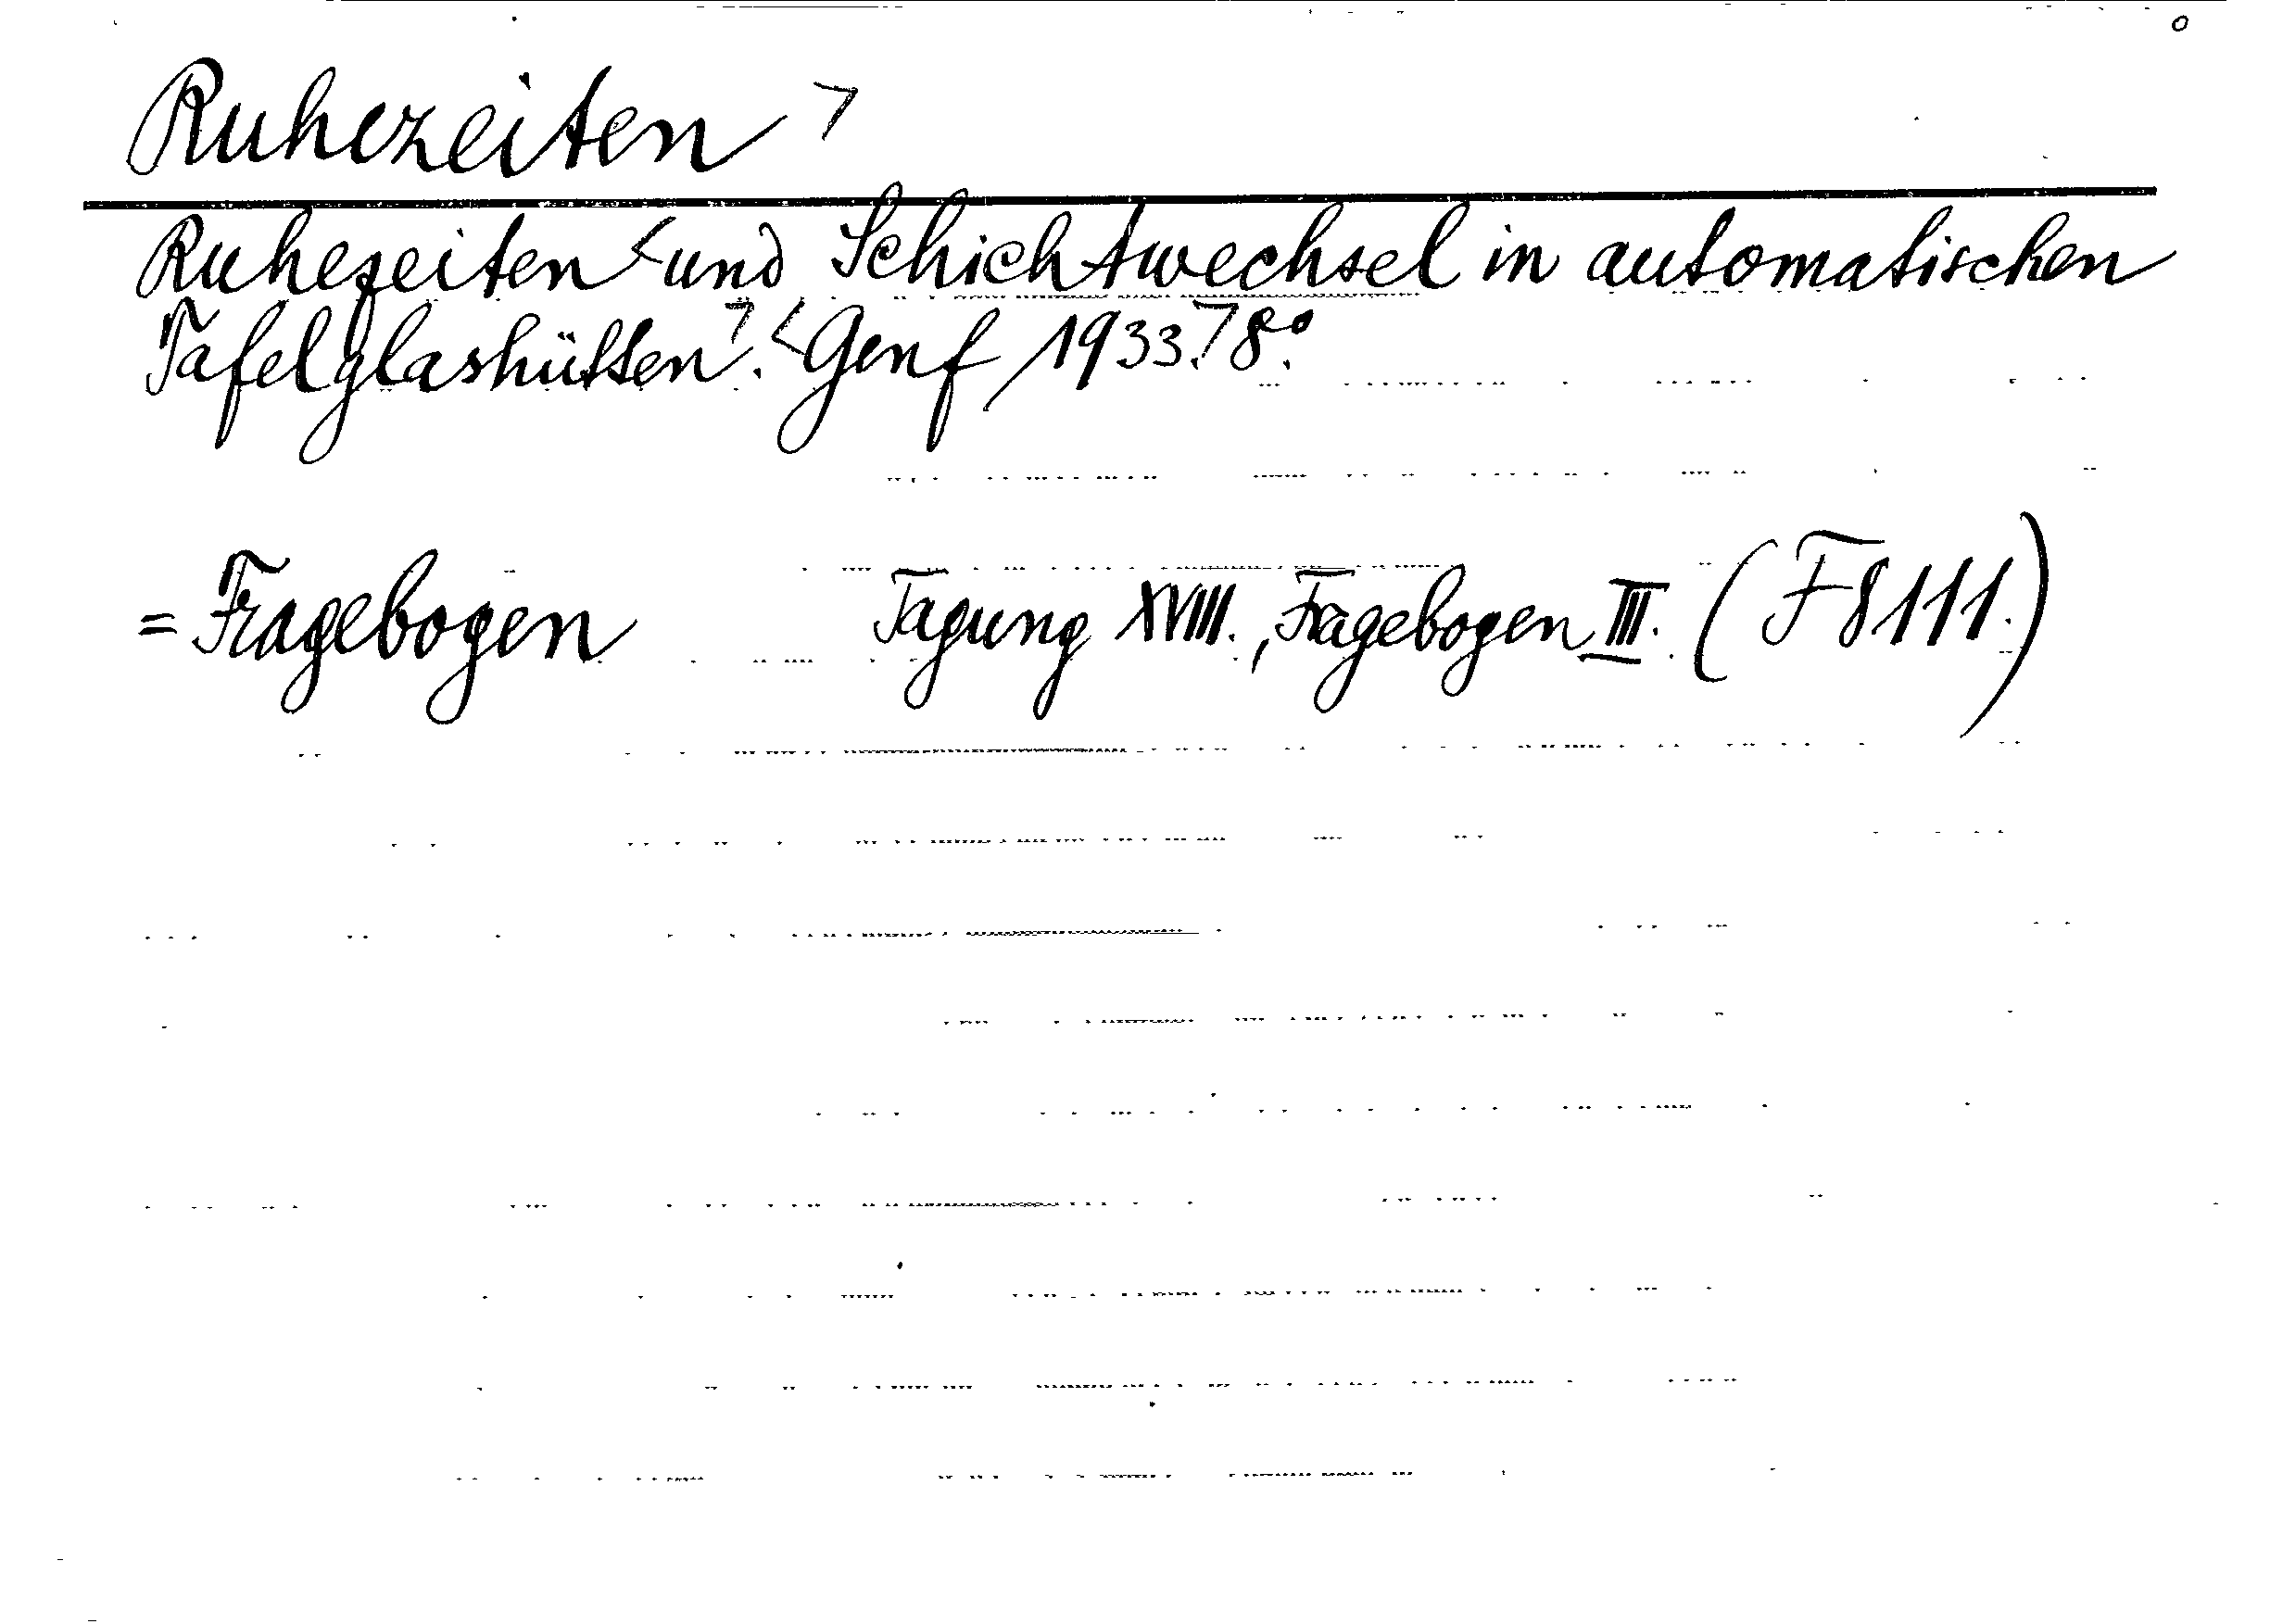 Ruhezeiten >
Ruhezeiten < und Schichtwechsel in automatischen
Tafelglashütten >. < Genf 1933. > 8°.
= Fragebogen Tagung XVIII., Fragebogen III. (F 8111.)